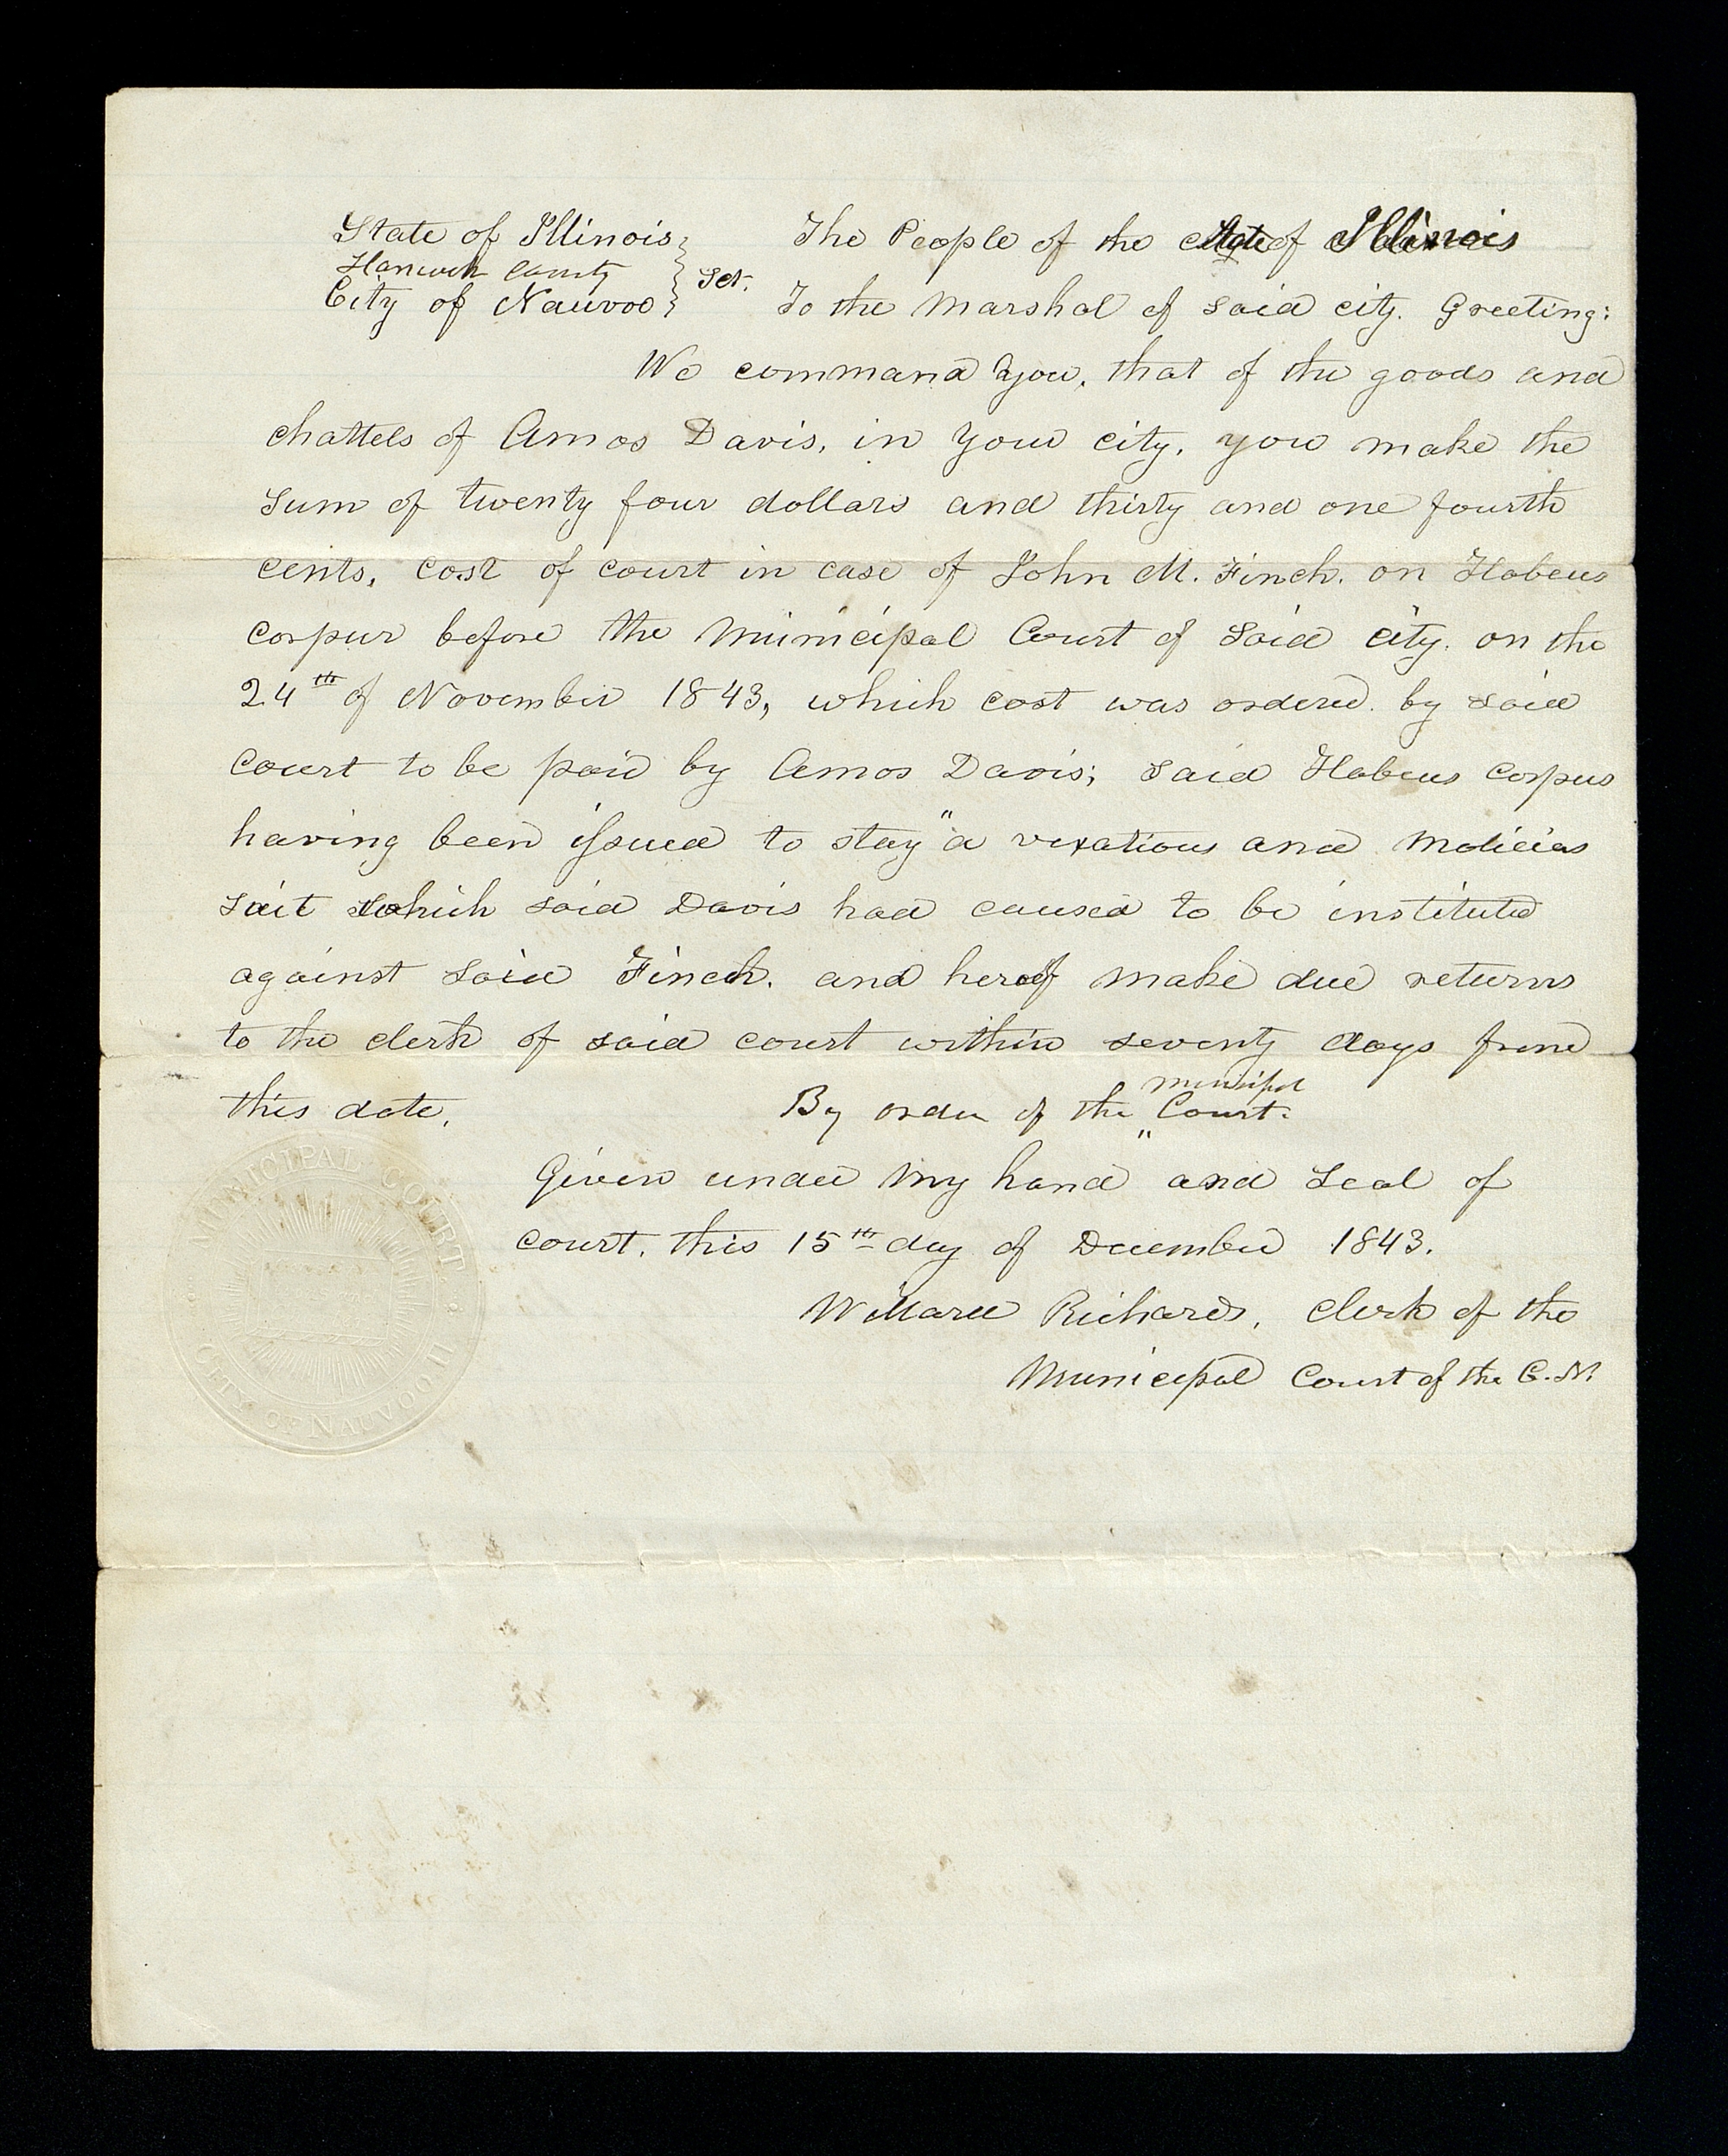 State of Illinois } The People of the State of Illinois
Hancock County } Sct.
City of Nauvoo } To the Marshal of said city. Greeting:
We command you, that of the goods and
chattels of Amos Davis, in your city, you make the
sum of twenty four dollars and thirty and one fourth
cents, cost of court in case of John M. Finch. on Habeus
corpus before the Municipal Court of said city. on the
24th of November 1843, which cost was ordered by said
court to be paid by Amos Davis; said Habeus corpus
having been issued to stay "a vexatious and Malicias
suit which said Davis had caused to be instituted
against said Finch. and hereof make due returns
to the clerk of said court within seventy days from
this date. By order of the Municipal Court. "
Given under my hand and Seal of
court, this 15th day of December 1843.
Willard Richards, Clerk of the
Municipal Court of the C. N.
MUNICIPAL COURT.
CITY OF NAUVOO